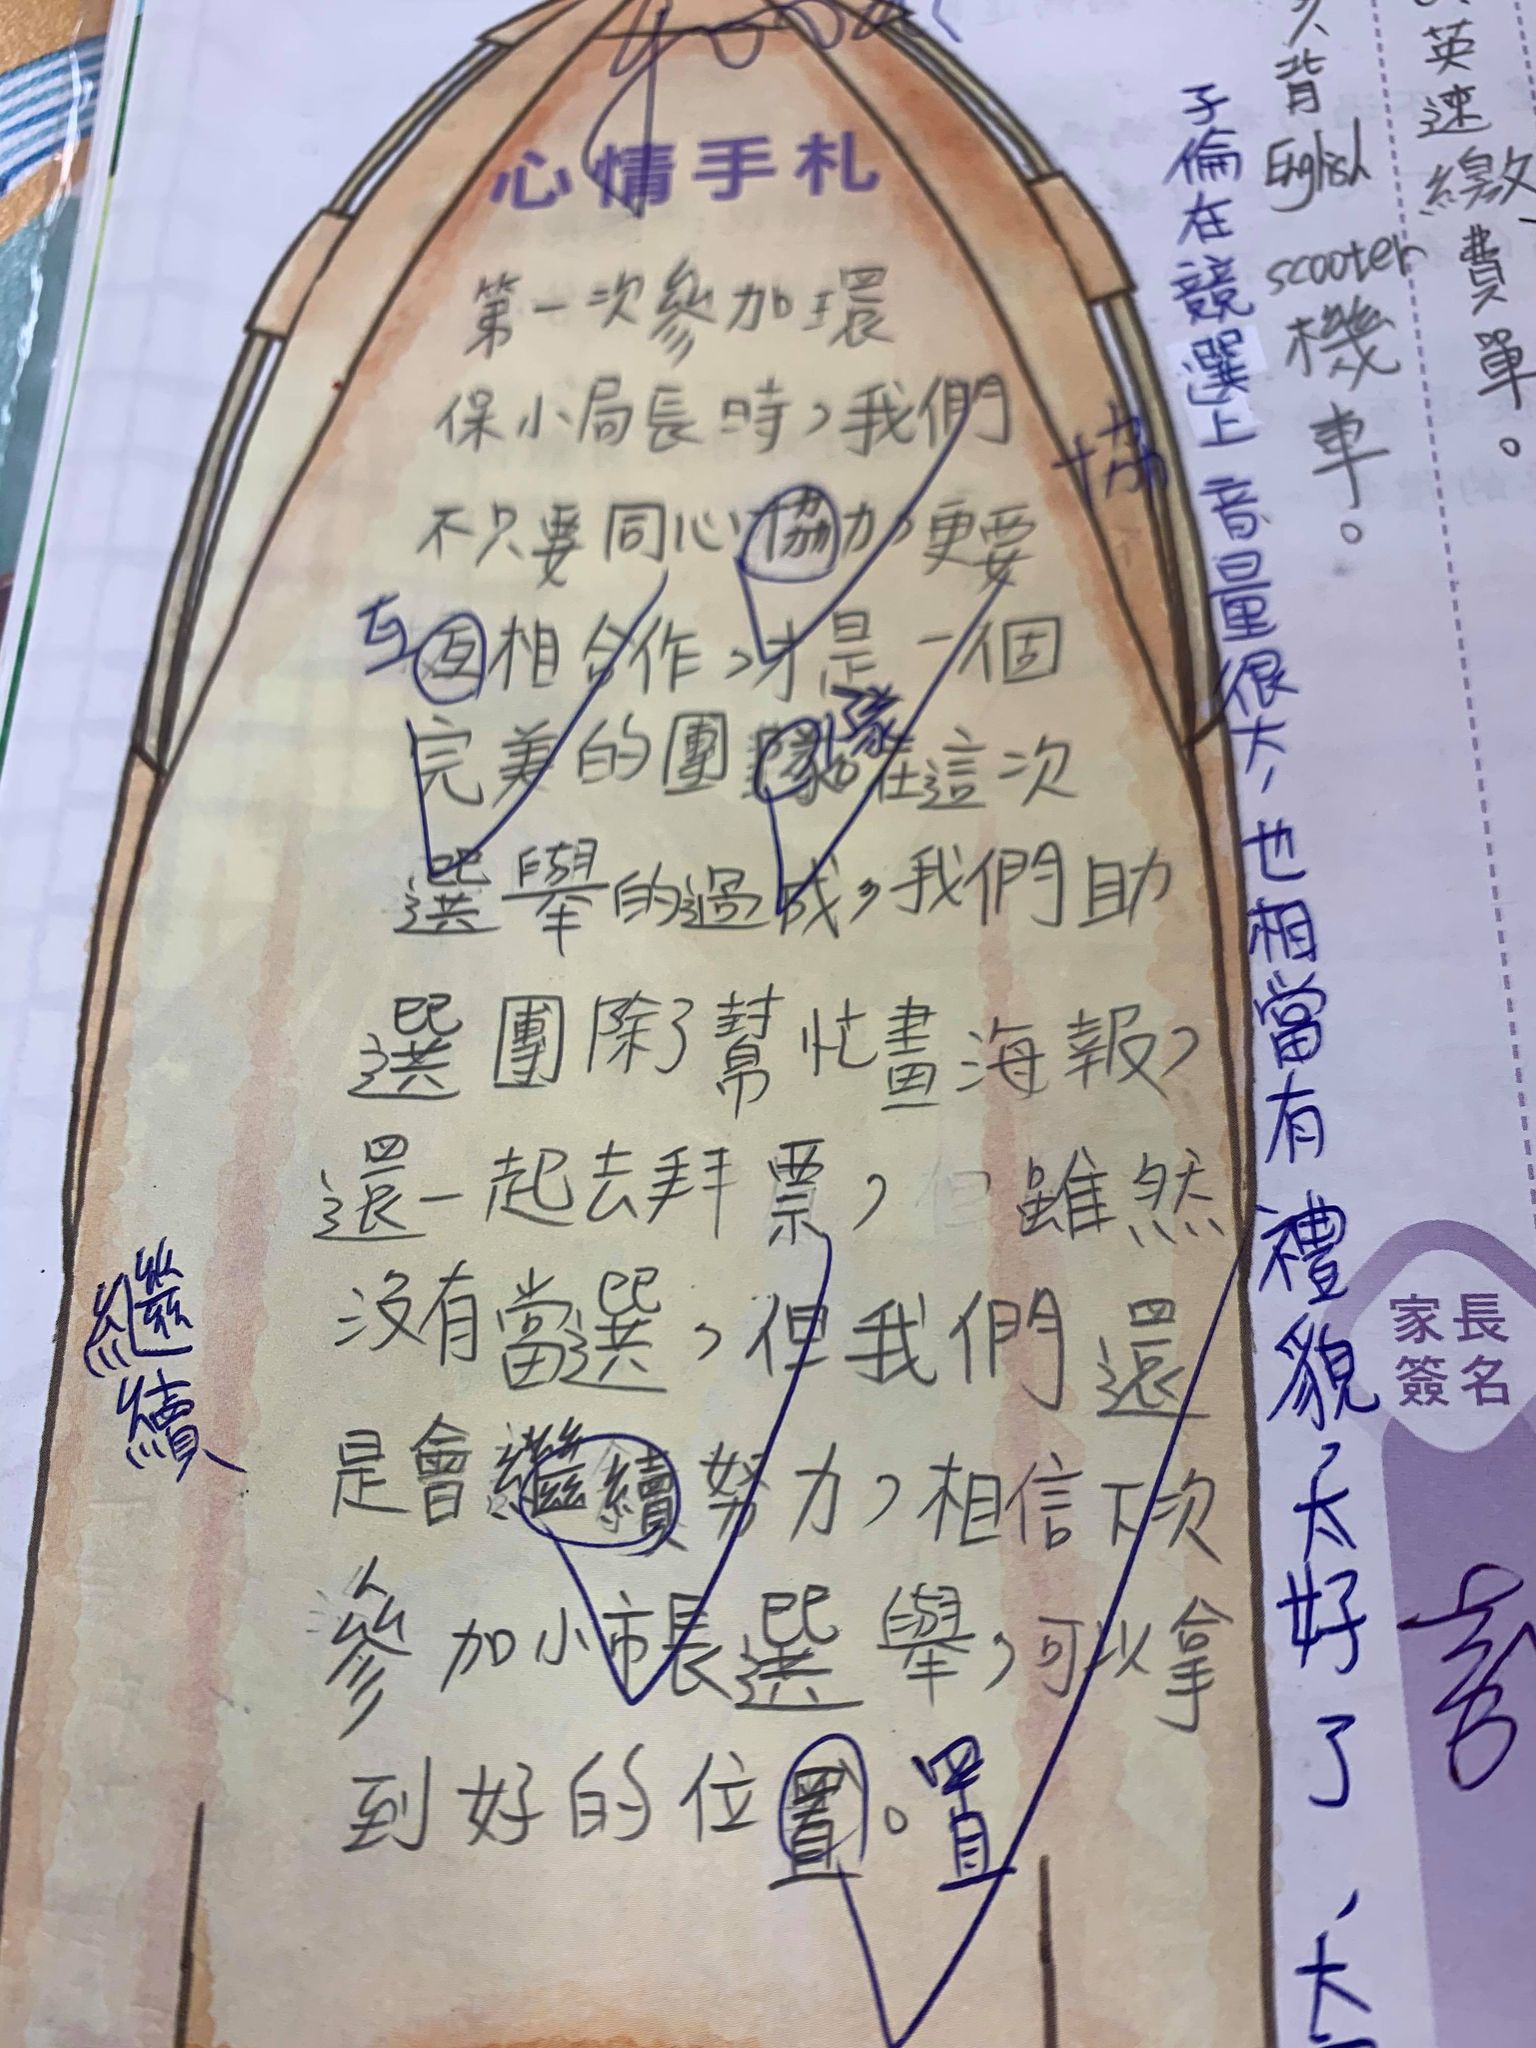 Good
心情手札
第一次參加環
保小局長時，我們
不只要同心協力，更要
協
互
互相合作，才是一個
完美的團隊。在這次
隊
選舉的過成，我們助
選團除了幫忙畫海報，
還一起去拜票，雖然
沒有當選，但我們還
是會繼續努力，相信下次
繼續
參加小市長選舉，可以拿
到好的位置。
置
子倫在競選上音量很大，也相當有禮貌，太好了、大
背English scooter機車。
英速繳費單。
家長
簽名